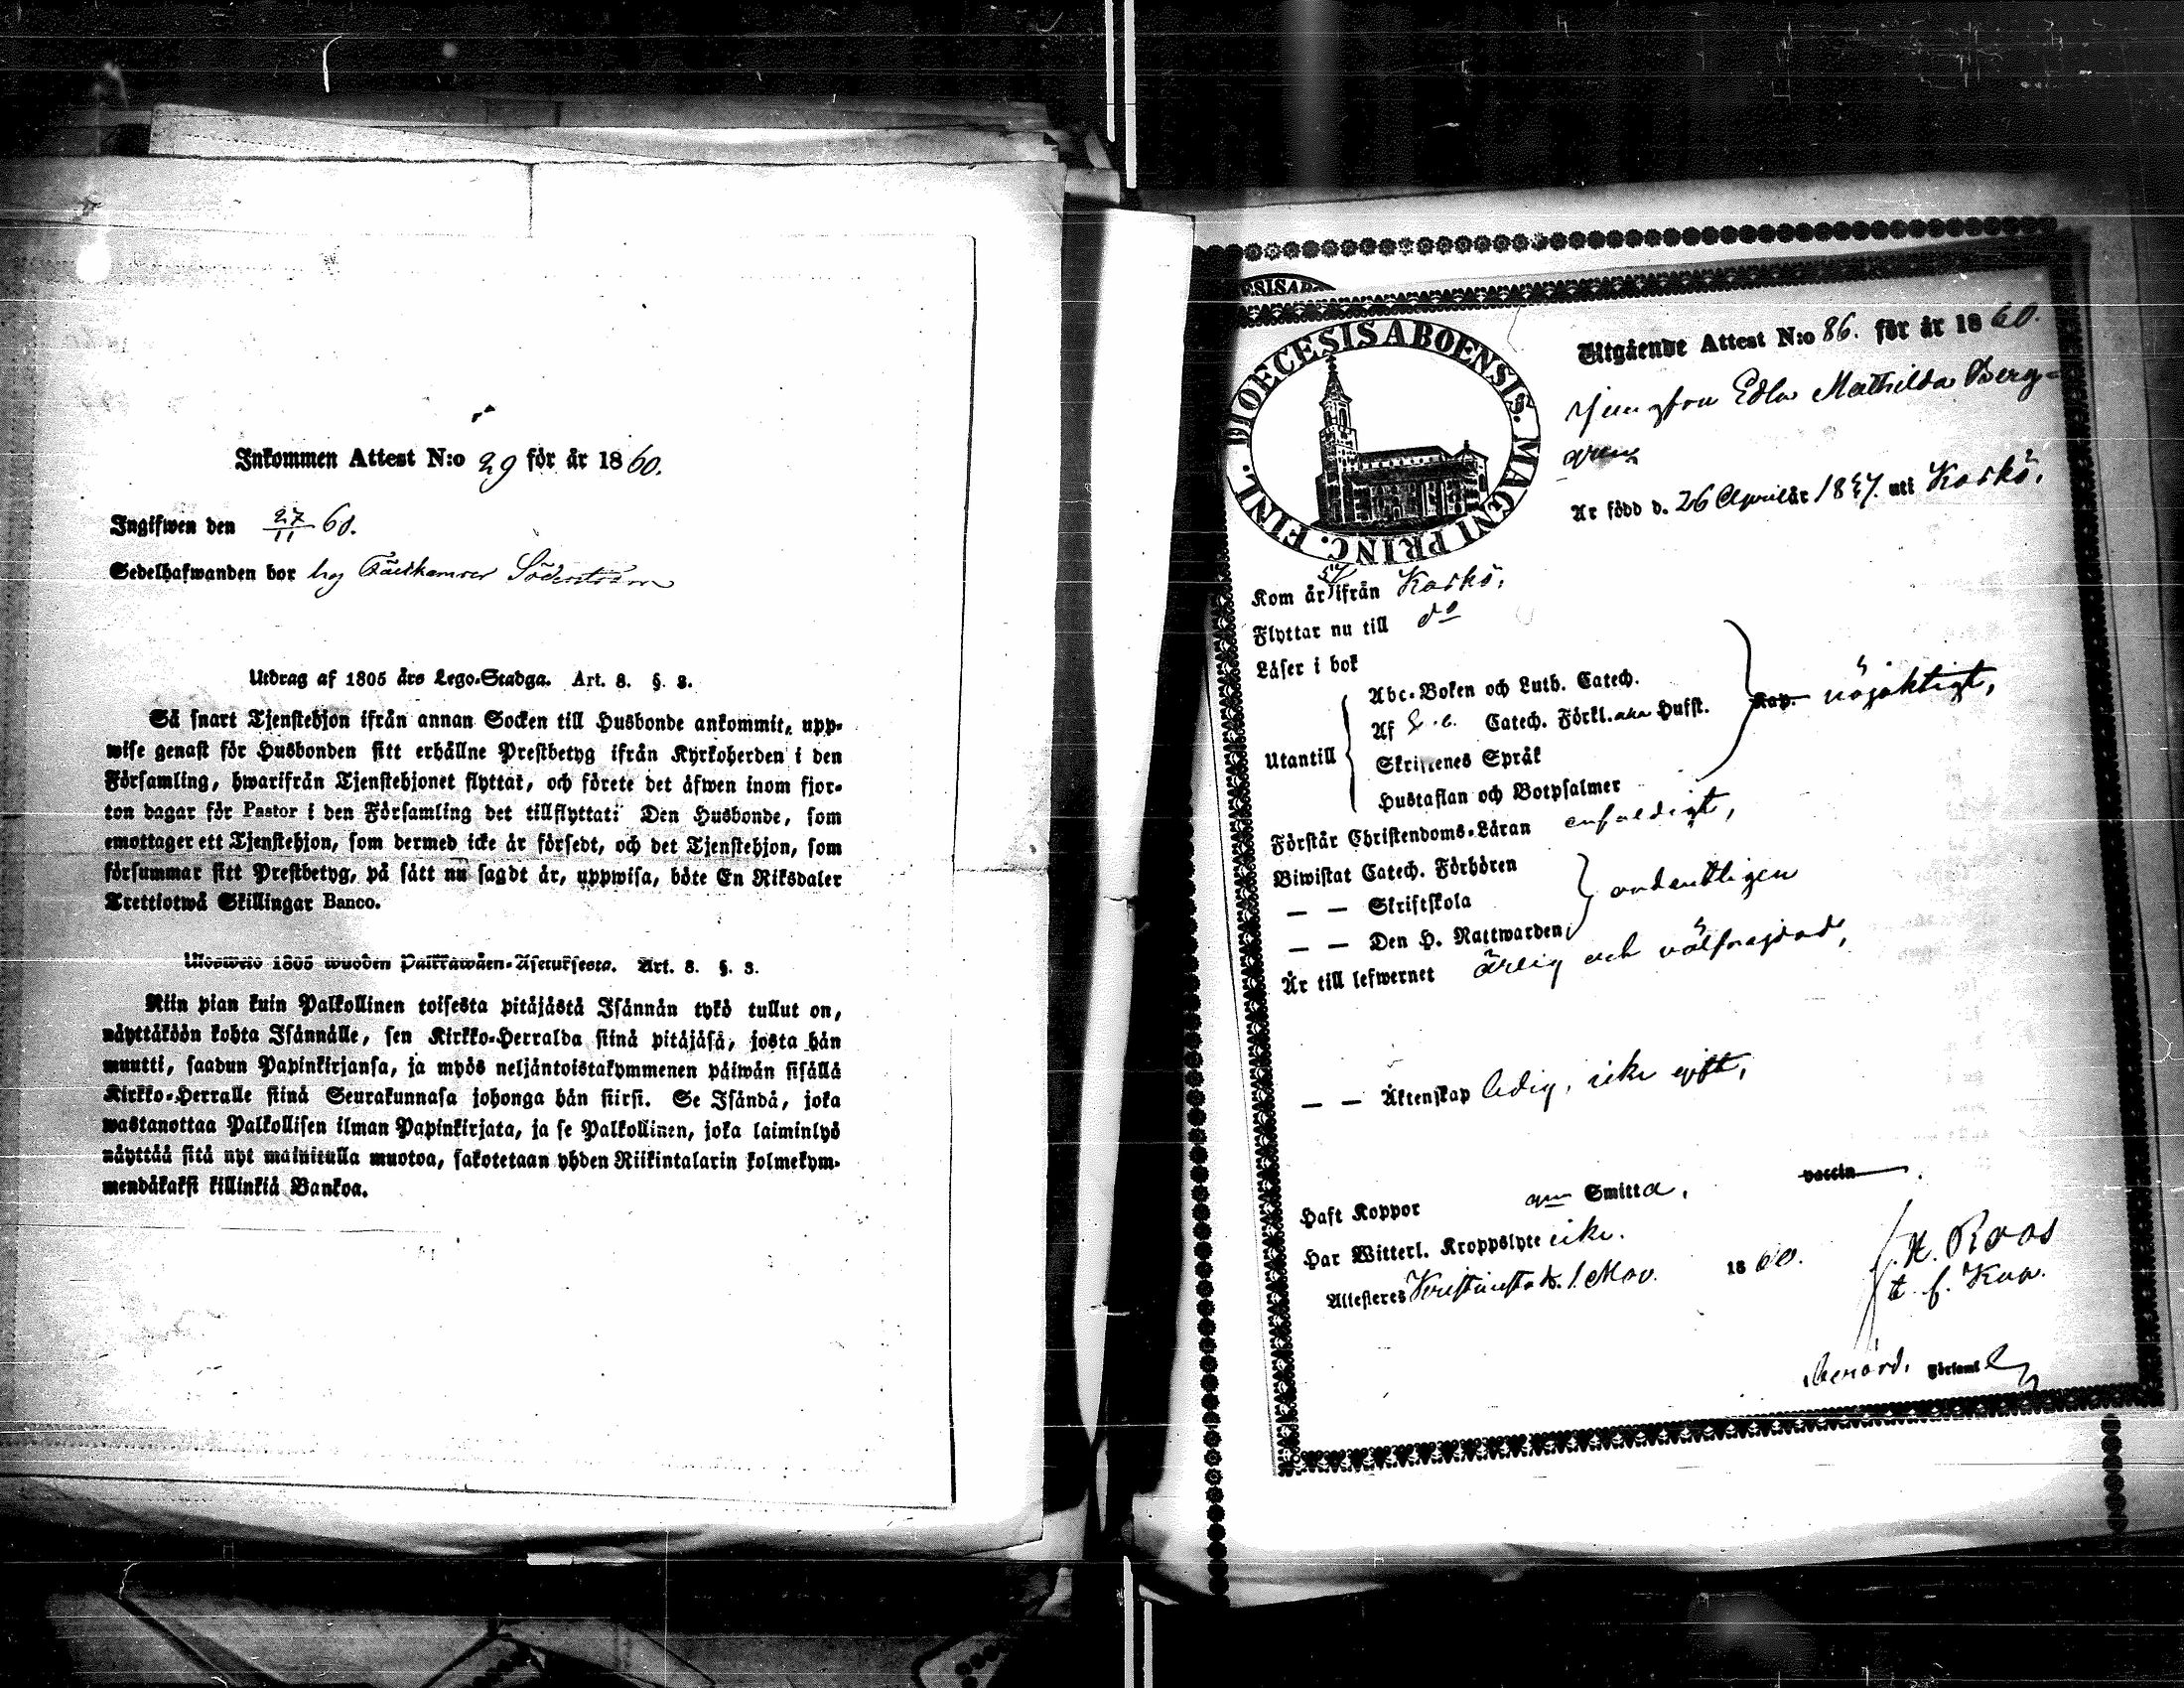 Inkommen Attest N:o 29 för år 1860.
Ingifwen den 27/11 60.
Sedelhafwanden bor hos Söderström
Utdrag af 1805 års Lego-Stadga. Art. 8. §. 3.
Så snart Tjenstehjon ifrån annan Socken till Husbonde ankommit, upp-
wise genast för Husbonden sitt erhållne Prestbetyg ifrån Kyrkoherden i den
Församling, hwarifrån Tjenstehjonet flyttat, och förete det äfwen inom fjor-
ton dagar för Pastor i den Församling det tillflyttat: Den Husbonde, som
emottager ett Tjenstehjon, som dermed icke är försedt, och det Tjenstehjon, som
försummar sitt Prestbetyg, på sätt nu sagdt är, uppwisa, böte En Riksdaler
Trettiotwå Skillingar Banco.
Ulosweto 1805 wuoden Palkkawäen-Asetuksesta. Art. 8. §. 3.
Niin pian kuin Palkollinen toisesta pitäjästä Isännän tykö tullut on,
näyttäköön kohta Isännälle, sen Kirkko-Herralda siinä pitäjäsä, josta hän
muutti, saadun Papinkirjansa, ja myös neljäntoistakymmenen päiwän sisällä
Kirkko-Herralle siinä Seurakunnasa johonga hän siirsi. Se Isändä, joka
wastanottaa Palkollisen ilman Papinkirjata, ja se Palkollinen, joka laiminlyö
näyttää sitä nyt mainitulla muotoa, sakotetaan yhden Riikintalarin kolmekym-
mendäkaksi killinkiä Bankoa.
ESISAB
DIOECESIS ABOENSIS. MAGNI PRINC. FINL.
Utgående Attest N:o 86. för år 1860.
Jungfru Edla Mathilda Berg=
gren
Är född d. 26 April år 1837. uti Kaskö.
Kom år 57 ifrån Kaskö.
Flyttar nu till do
Läser i bok
Abc-Boken och Luth. Catech.
Af Catech. Förkl. Husst.
Utantill
Skriftenes Språk
Hustaflan och Botpsalmer
Kap. nöjaktigt,
Förstår Christendoms-Läran enfaldigt,
Biwistat Catech. Förhören
— — Skriftskola
— — Den H. Nattwarden
ordentligen
Är till lefwernet ärlig och välfrejdad,
— — Äktenskap ledig, icke gift,
Haft Koppor Smitta. vaccin
Har Witterl. Kroppslyte icke.
Attesteras Kristinestad. 1. Nov. 1860.
Roos
t. f. Kap.
Församl